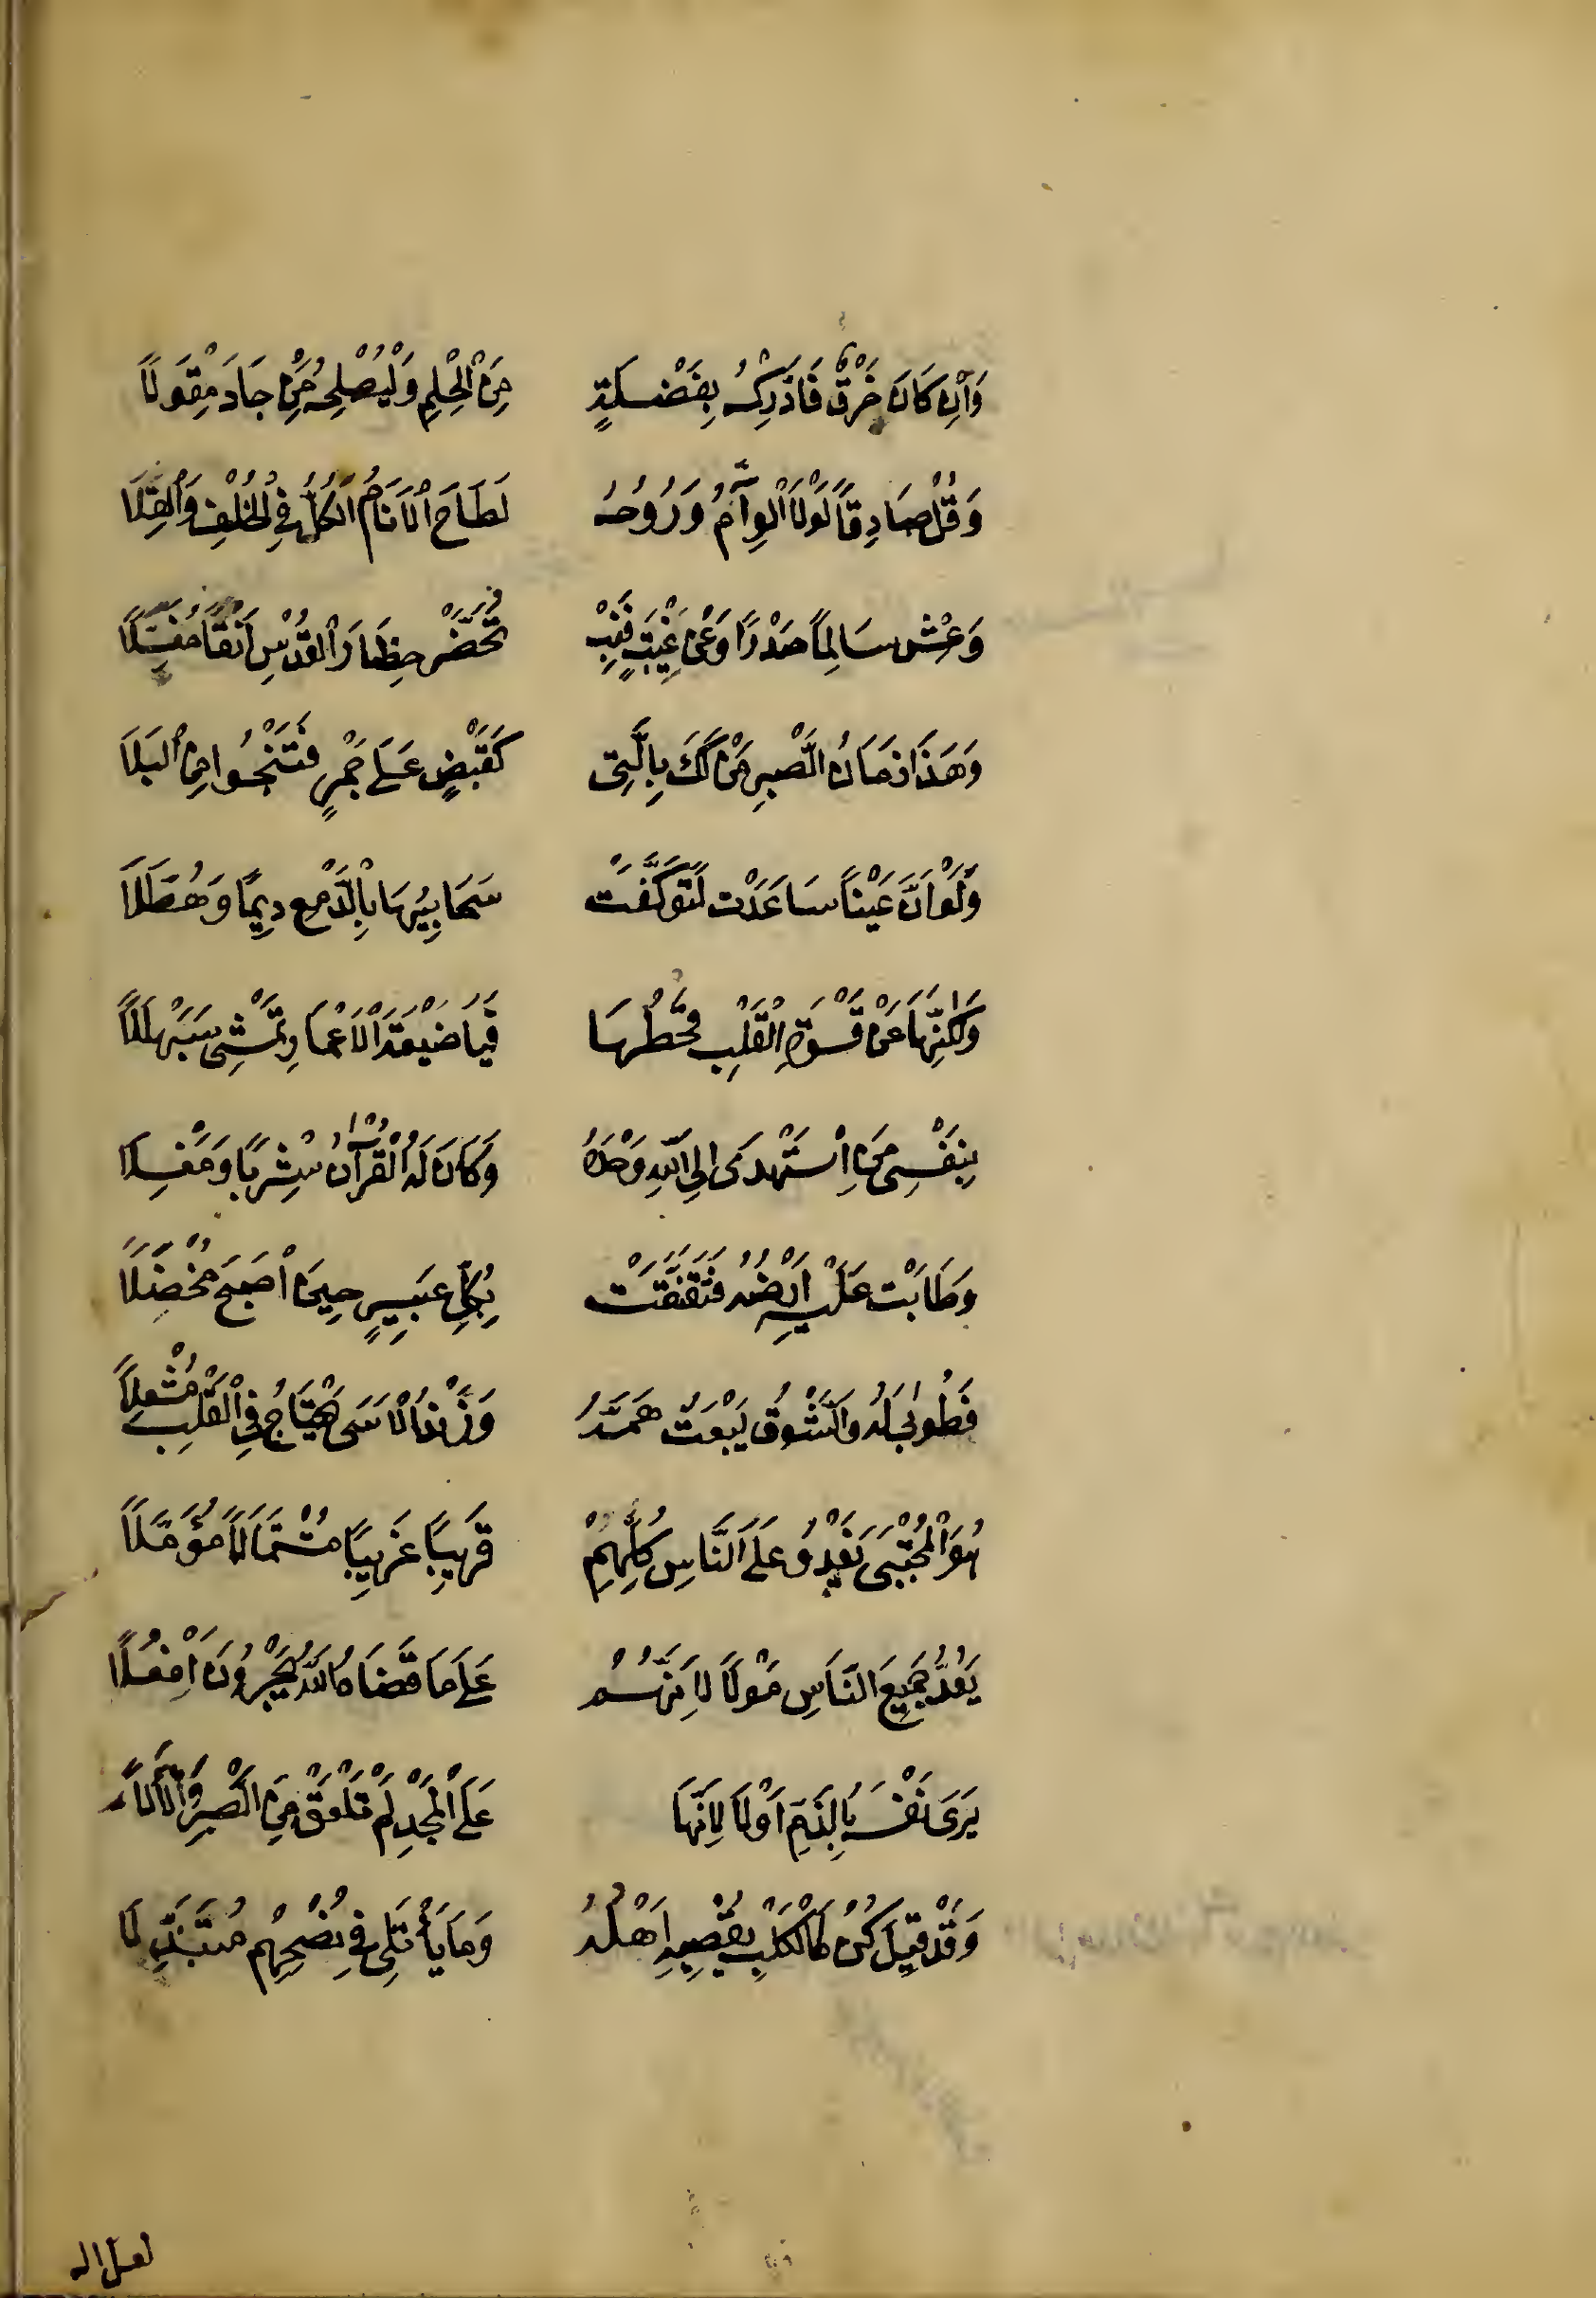 وَاِنْ كَانَ خَرْقٌ فَادَّرِكْهُ بِفَضْلَةٍ مِنَ الْحِلْمِ وَلْيُصْلِحْهُ مَنْ جَادَ مِقْوَلًا
وَقُلْ صَادِقًا لَوْلَا الْوِآمُ وَرُوحُهُ لَطَاحَ الْاَنَامُ الْكُلُّ فِي الْخُلْفِ وَالْقِلَا
وَعِشْ سَالِمًا صَدْرًا وَعَنْ غِيْبَةٍ فَغِبْ تُحَضَّرْ حِظَارَ الْقُدْسِ اَنْقَا مُغَسَّلًا
وَهَذَا زَمَانُ الصَّبْرِ مَنْ لَكَ بِالَّتِى كَقَبْضٍ عَلَى جَمْرٍ فَتَنْجُوا مِنَ الْبَلَا
وَلَوْ اَنَّ عَيْنًا سَاعَدَتْ لَتَوَكَّفَتْ سَحَايِبُهَا بِالدَّمْعِ دِيمًا وَهُطَّلَا
وَلَكِنَّهَا عَنْ قَسْوَةِ الْقَلْبِ قَحْطُهَا فَيَا ضَيْعَةَ الْاَعْمَارِ تَمْشِى سَبَهْلَلَا
بِنَفْسِى مَنِ اسْتَهْدَى اِلَى اللهِ وَحْدَهُ وَكَانَ لَهُ الْقُرْآنُ شِرْبًا وَمَغْسِلَا
وَطَابَتْ عَلَيْهِ اَرْضُهُ فَتَفَتَّقَتْ بِكُلِّ عَبِيرٍ حِينَ اَصْبَحَ مُخْضَلَا
فَطُوبَى لَهُ وَالشَّوْقُ يَبْعَثُ هَمَّهُ وَزَنْدُ الْاَسَى يَهْتَاجُ فِى الْقَلْبِ مُشْعِلَا
هُوَ الْمُجْتَبَى يَغْدُو عَلَى النَّاسِ كُلِّهِمْ قَرِيبًا غَرِيبًا مُسْتَمَالًا مُؤَمَّلَا
يَعُدُّ جَمِيعَ النَّاسِ مَوْلًا لِاَنَّهُمْ عَلَى مَا قَضَاهُ اللهُ يُجْرُونَ اَفْعُلَا
يَرَى نَفْسَهُ بِالذَّمِّ اَوْلَا لِاَنَّهَا عَلَى الْمَجْدِ لَمْ تَلْعَقْ مِنَ الصَّبْرِ وَالْاَلَا
وَقَدْ قِيلَ كُنْ كَالْكَلْبِ يُقْصِيهِ اَهْلُهُ وَمَا يَأْتَلِى فِى نُصْحِهِمْ مُتَبَذِّلَا
لعل اله